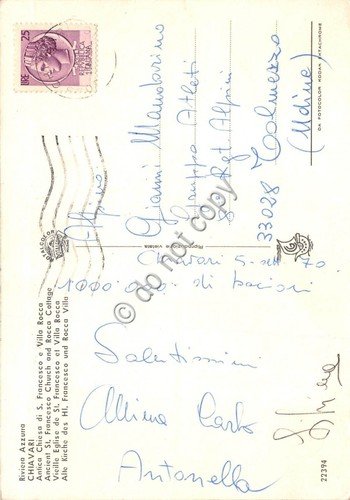 LIRE 25
REPUBBLICA
ITALIANA
Alpino
Gianni
Gruppo Atleti
8 Rgt Alpini
33028 Tolmezzo
(Udine)
Chiavari 5-sett 70
1000.000. di bacioni
Salutissimi
Carlo
Antonella
Silvana
Riviera Azzurra
CHIAVARI
Antica Chiesa di S. Francesco e Villa Rocca
Ancient St. Francesco Church and Rocca Cottage
Vieille Eglise de St. Francesco et Villa Rocca
Alte Kirche des Hl. Francesco und Rocca Villa
Riproduzione vietata
DA FOTOCOLOR KODAK EKTACHROME
22394
© do not copy